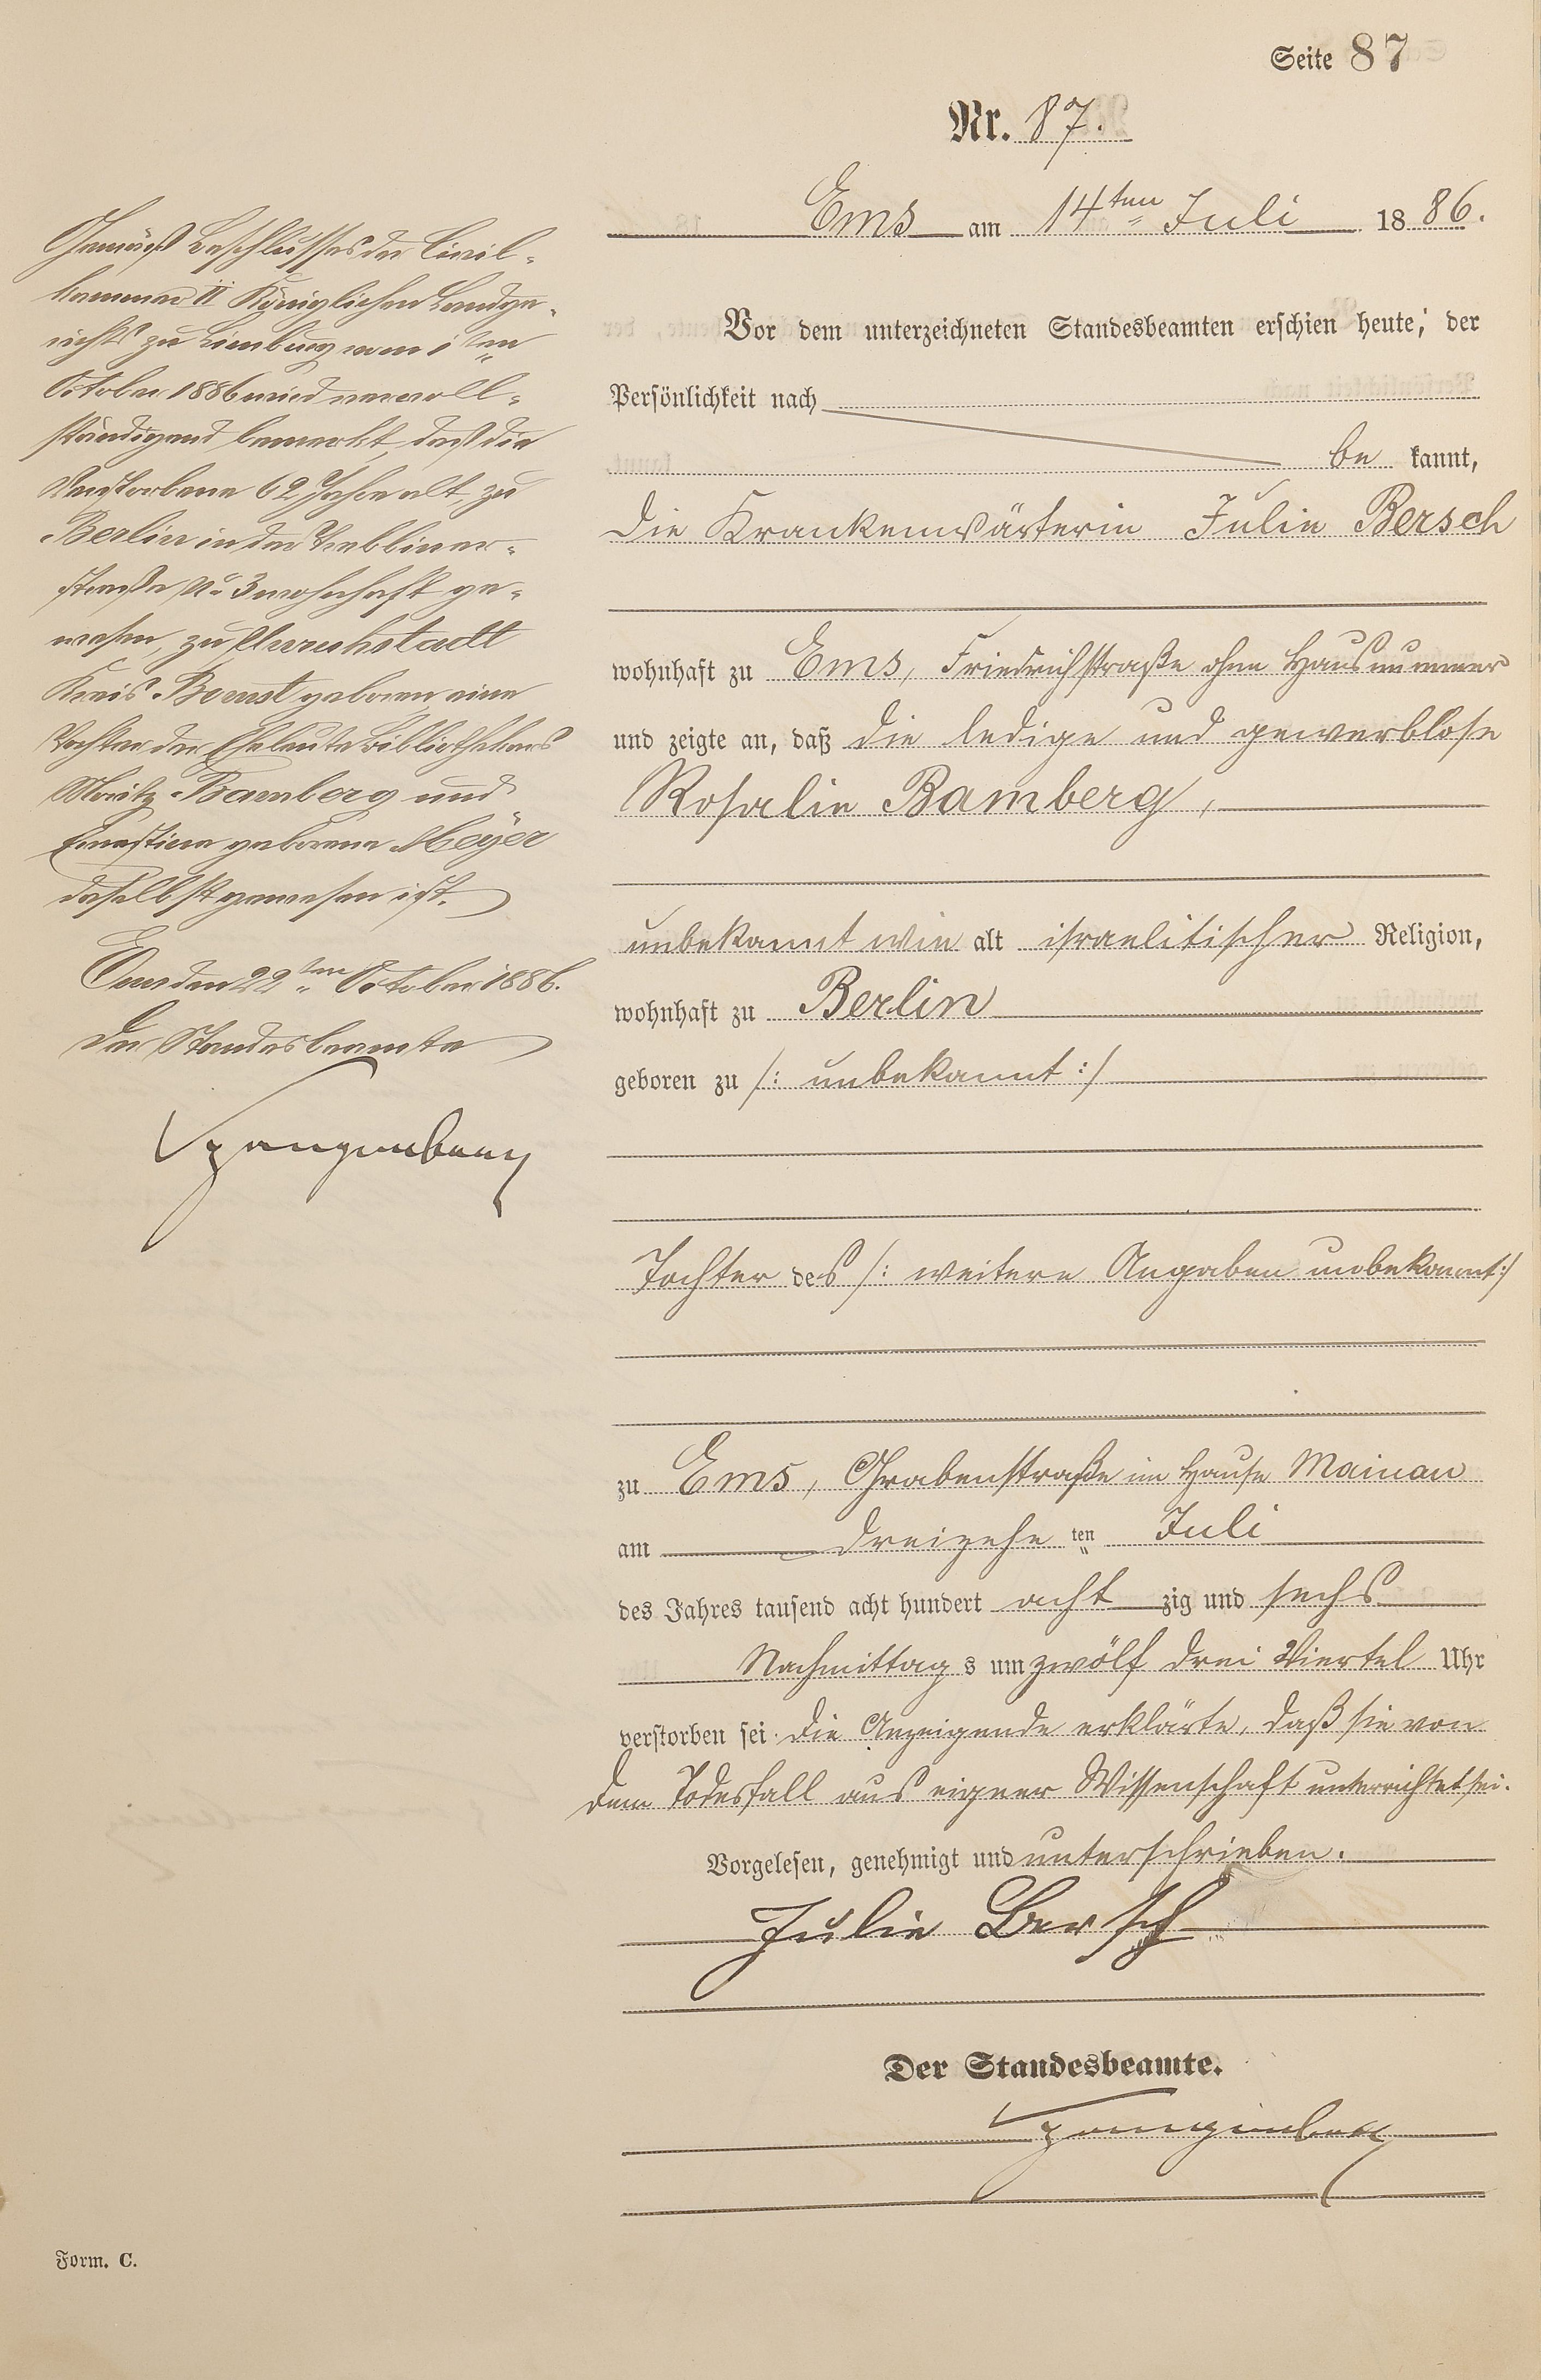 Seite 87
Nr. 87.
Ems am 14ten Juli 1886.
Vor dem unterzeichneten Standesbeamten erschien heute, der
Persönlichkeit nach
be kannt,
die Krankenwärterin Julie Bersch
wohnhaft zu Ems, Friedrichstraße ohne Hausnummer
und zeigte an, daß die ledige und gewerblose
Rosalie Bamberg,
unbekannt wie alt israelitischer Religion,
wohnhaft zu Berlin
geboren zu /: unbekannt :/
Tochter des /: weitere Angaben unbekannt :/
zu Ems, Grabenstraße im Hause Mainau
am dreizehnten Juli
des Jahres tausend acht hundert achtzig und sechs
Nachmittags um zwölf drei Viertel Uhr
verstorben sei. Die Anzeigende erklärte, daß sie von
dem Todesfall aus eigner Wissenschaft unterrichtet sei.
Vorgelesen, genehmigt und unterschrieben.
Julie Bersch
Der Standesbeamte.
Spangenberg
Gemäß Beschlusses der Civil-
kammer II Königlichen Landge-
richts zu Limburg vom 1ten
October 1886 wird vervoll-
ständigend bemerkt, daß die
Verstorbene 62 Jahre alt, zu
Berlin in der Trebbiner-
straße No 3 wohnhaft ge-
wesen, zu
Kreis Bomst geboren, eine
Tochter der Eheleute Bibliothekars
Moritz Bamberg und
Ernestine geborene Meÿer
daselbst gewesen ist.
Ems den 22ten October 1886.
Der Standesbeamte
Spangenberg
Form. C.